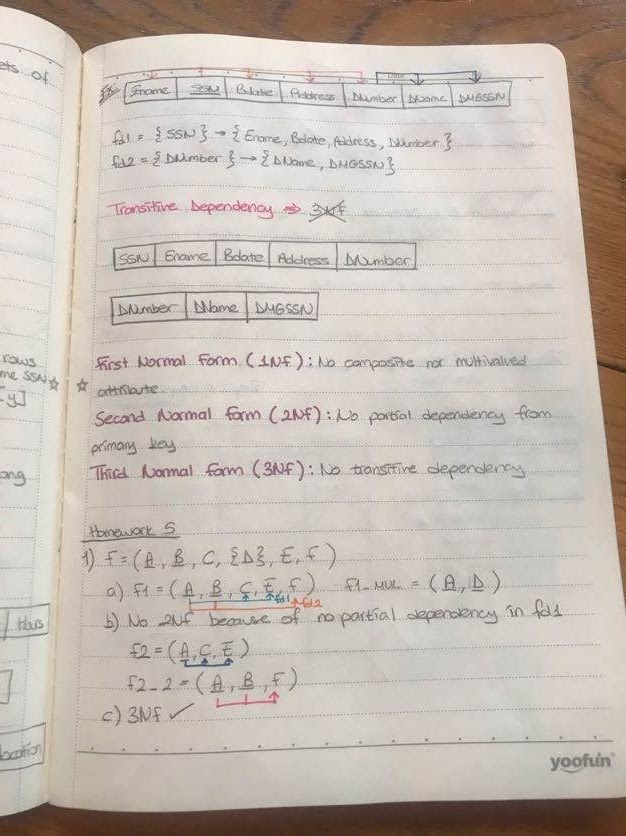 ets of
Ex
Ename SSN Bdate Address DNumber DName DMGSSN
fd1 = {SSN} → {Ename, Bdate, Address, DNumber}
fd2 = {DNumber} → {DName, DMGSSN}
Transitive Dependency ⇒ 3NF
SSN Ename Bdate Address DNumber
DNumber DName DMGSSN
rows
me SSN ☆
-y]
ong
Hours
location
☆ First Normal Form (1NF): No composite nor multivalued
attribute.
Second Normal Form (2NF): No partial dependency from
primary key
Third Normal Form (3NF): No transitive dependency
Homework 5
1) F = (A, B, C, {D}, E, F)
a) F1 = (A, B, C, E, F) F1-MUL = (A, D)
fd1 fd2
b) No 2NF because of no partial dependency in fd1
F2 = (A, C, E)
F2-2 = (A, B, F)
c) 3NF ✓
yoofun